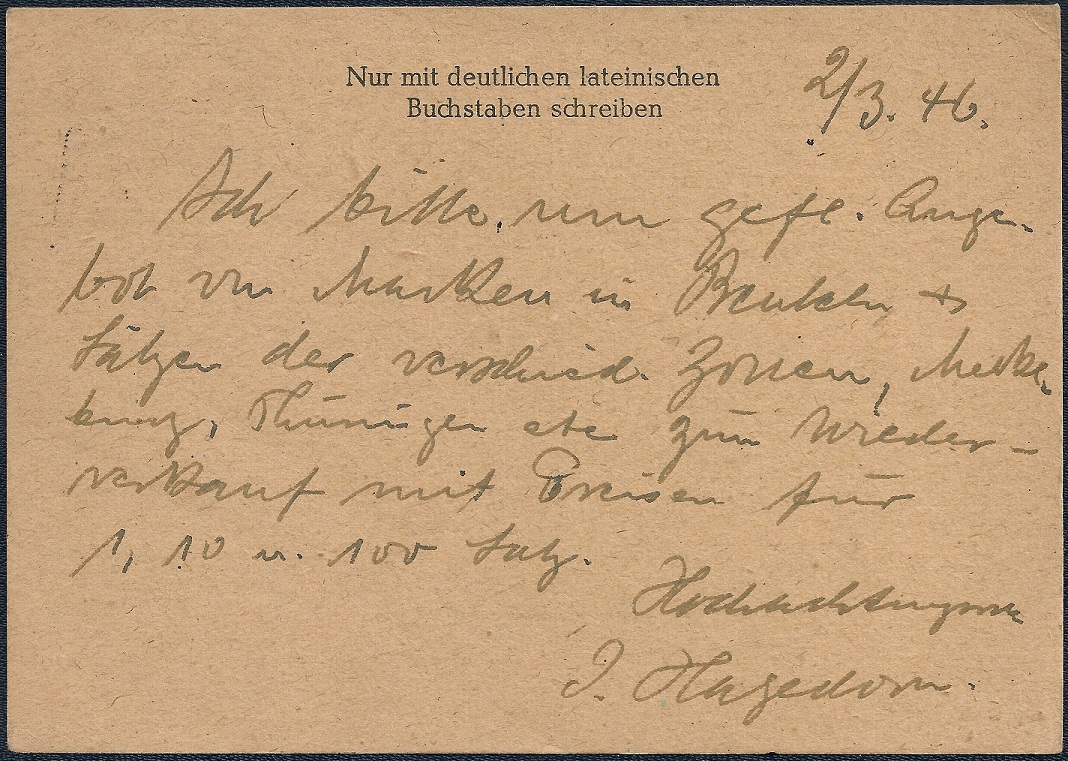 Nur mit deutlichen lateinischen
Buchstaben schreiben
2/3. 46.
Ich bitte um gefl. Ange-
bot von Marken in Beuteln +
Sätzen der verschied. Zonen, Meckl.
burg, Thüringen etc zum Wieder-
verkauf mit Preisen für
1, 10 u. 100 Satz.
Hochachtungsvoll
J. Hagedorn.